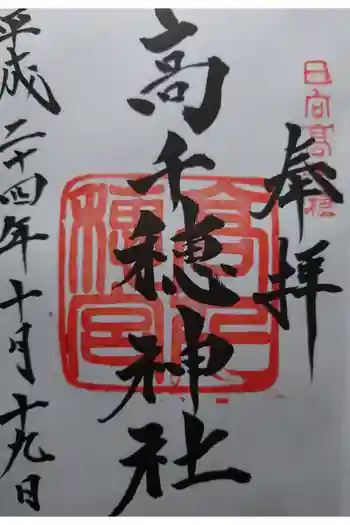 奉拝
日向高千穂
高千穂神社
平成二十四年十月十九日